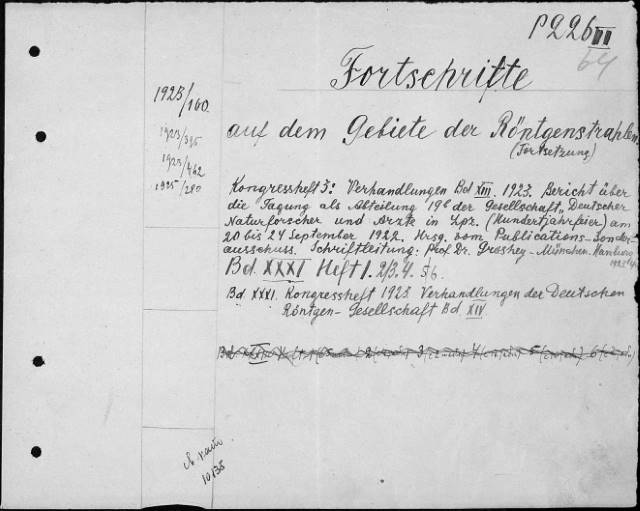 P226 VI
64
Fortschritte
1923/160
1923/395
1923/462
1925/280
auf dem Gebiete der Röntgenstrahlen
(Fortsetzung)
Kongressheft 3: Verhandlungen Bd XIII. 1923. Bericht über
die Tagung als Abteilung 19b der Gesellschaft Deutscher
Naturforscher und Ärzte in Lpz. (Hundertjahrfeier) am
20 bis 24 September 1922. Hrsg. vom Publications-Sonder
ausschuss. Schriftleitung: Prof. Dr. Grashey-München. Hamburg
1923
Bd. XXXI Heft 1. 2/3. 4. 5/6.
Bd. XXXI. Kongressheft 1923 Verhandlungen der Deutschen
Röntgen-Gesellschaft Bd XIV
10/35